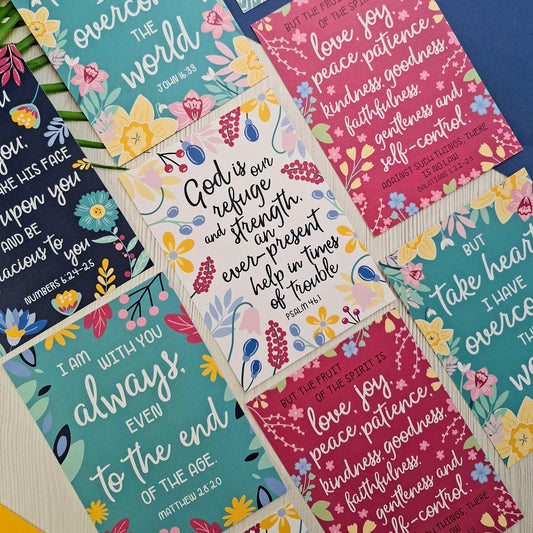 overcome
THE
world
JOHN 16:33
BUT THE FRUIT
OF THE SPIRIT IS
love, joy
peace, patience,
kindness, goodness,
faithfulness,
gentleness and
self-control.
AGAINST SUCH THINGS, THERE
IS NO LAW
GALATIANS 5:22-23
YOU.
HIS FACE
upon you
AND BE
to you
NUMBERS 6:24-25
God is our
refuge
and strength.
an
ever-present
help in times
of trouble
PSALM 46:1
BUT
take heart
I HAVE
THE
I AM WITH YOU
always,
EVEN
to the end
OF THE AGE.
MATTHEW 28:20
BUT THE FRUIT
OF THE SPIRIT IS
love, joy
peace, patience,
kindness, goodness,
faithfulness,
gentleness and
self-control.
THINGS, THERE